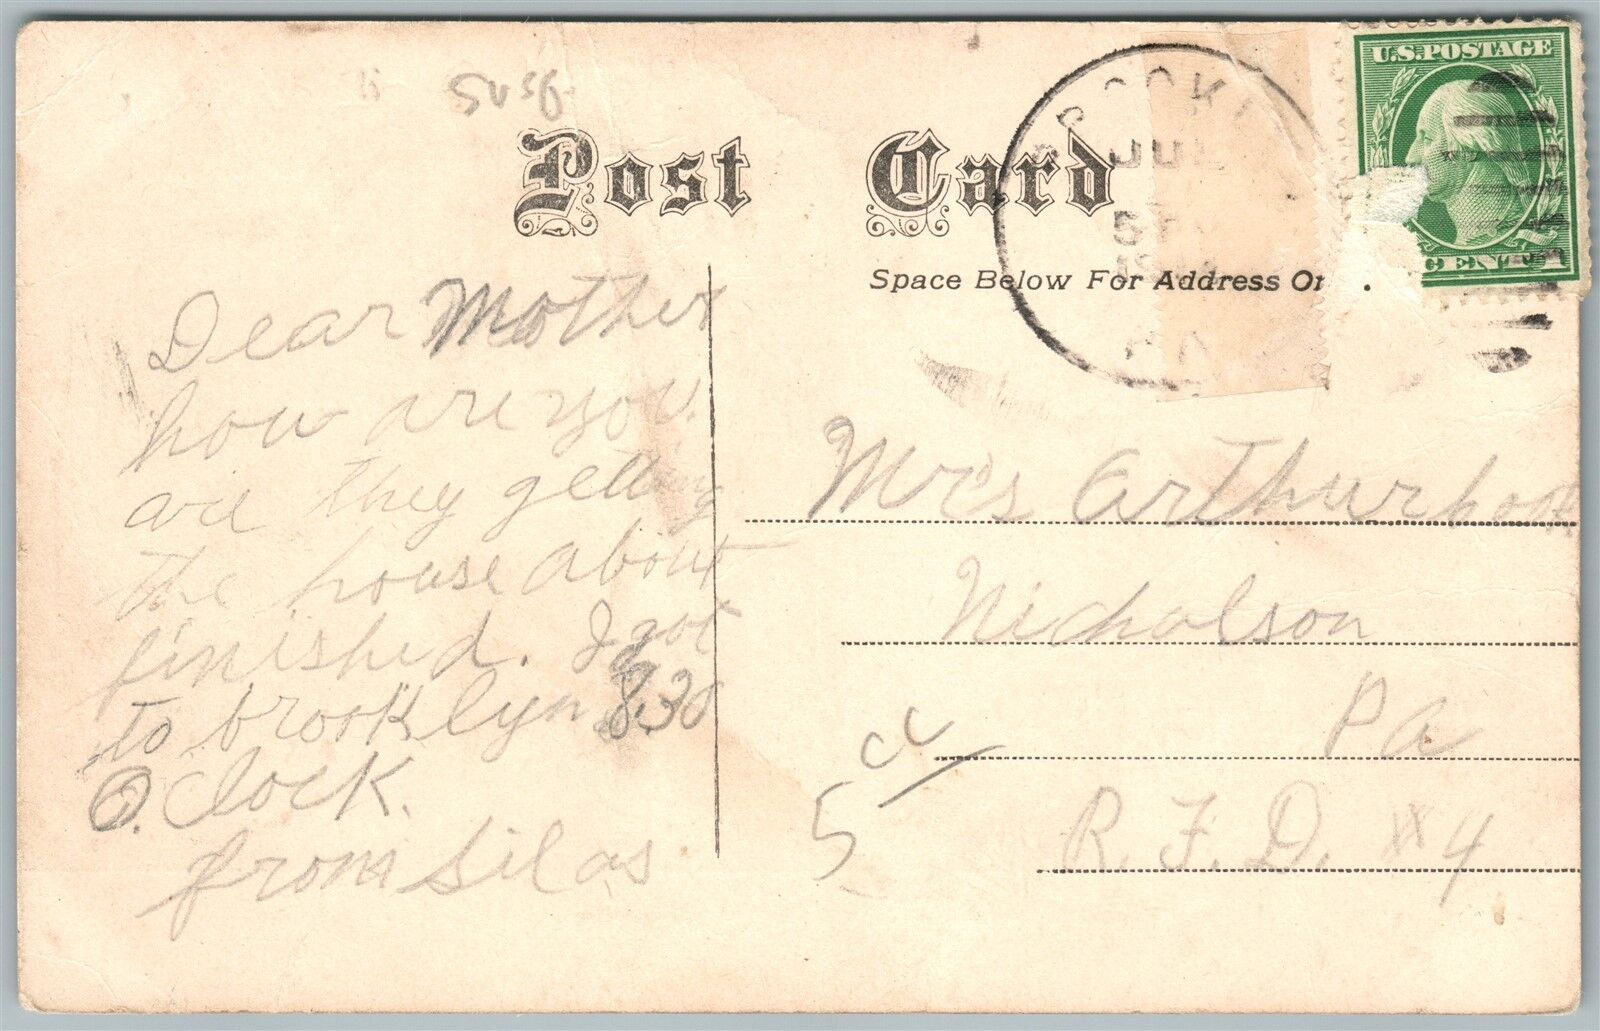 Post Card
Space Below For Address
U.S. POSTAGE
JUL
PA
Dear Mother
how are you.
are they getting
the house about
finished. I got
to brooklyn 8.30
O. Clock.
from Silas
Mrs Arthur
Nicholson
Pa
R. F. D. #4
5